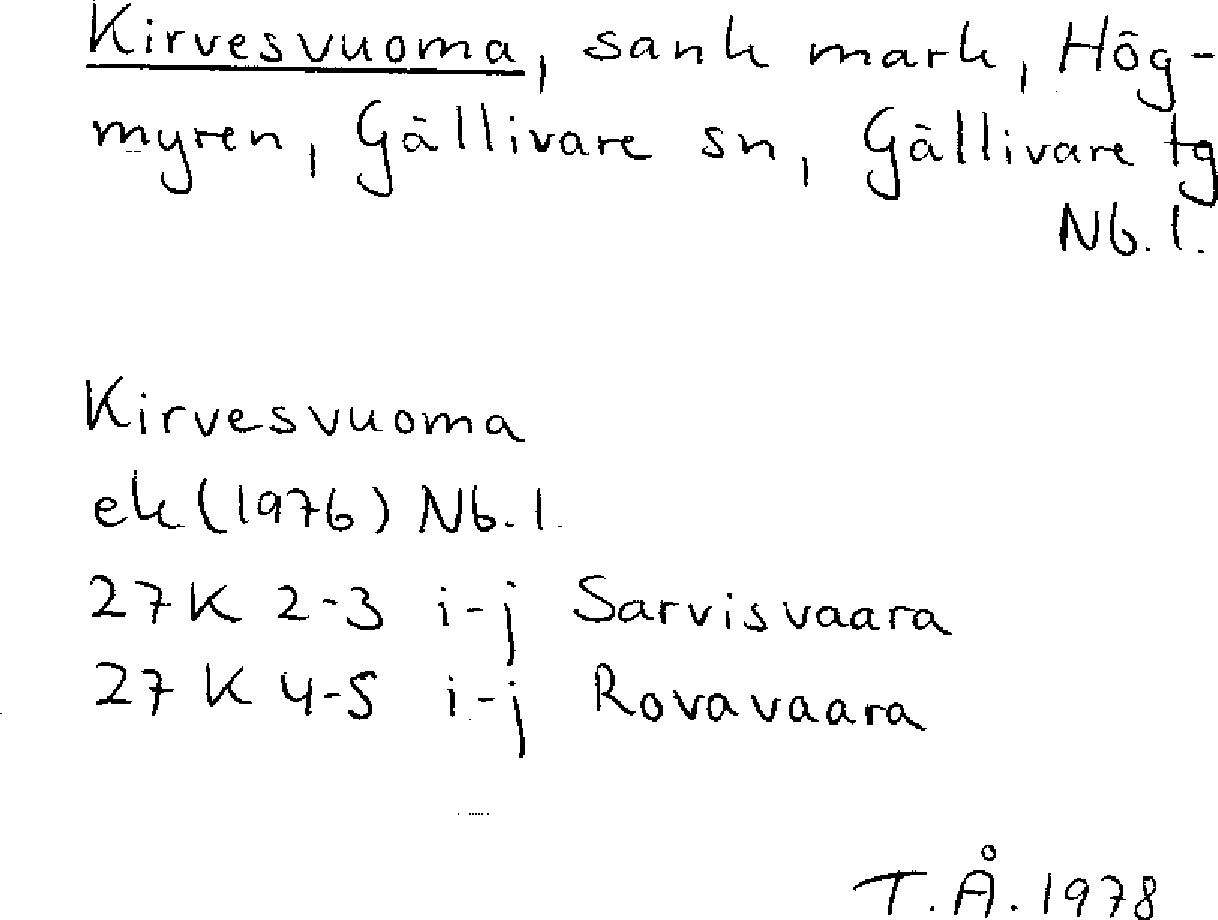 Kirvesvuoma, sank mark, Hög-
myren, Gällivare sn, Gällivare tg
Nb. l.
Kirvesvuoma
ek (1976) Nb. l.
27K 2-3 i-j Sarvisvaara
27 K 4-5 i-j Rovavaara
T.Å. 1978